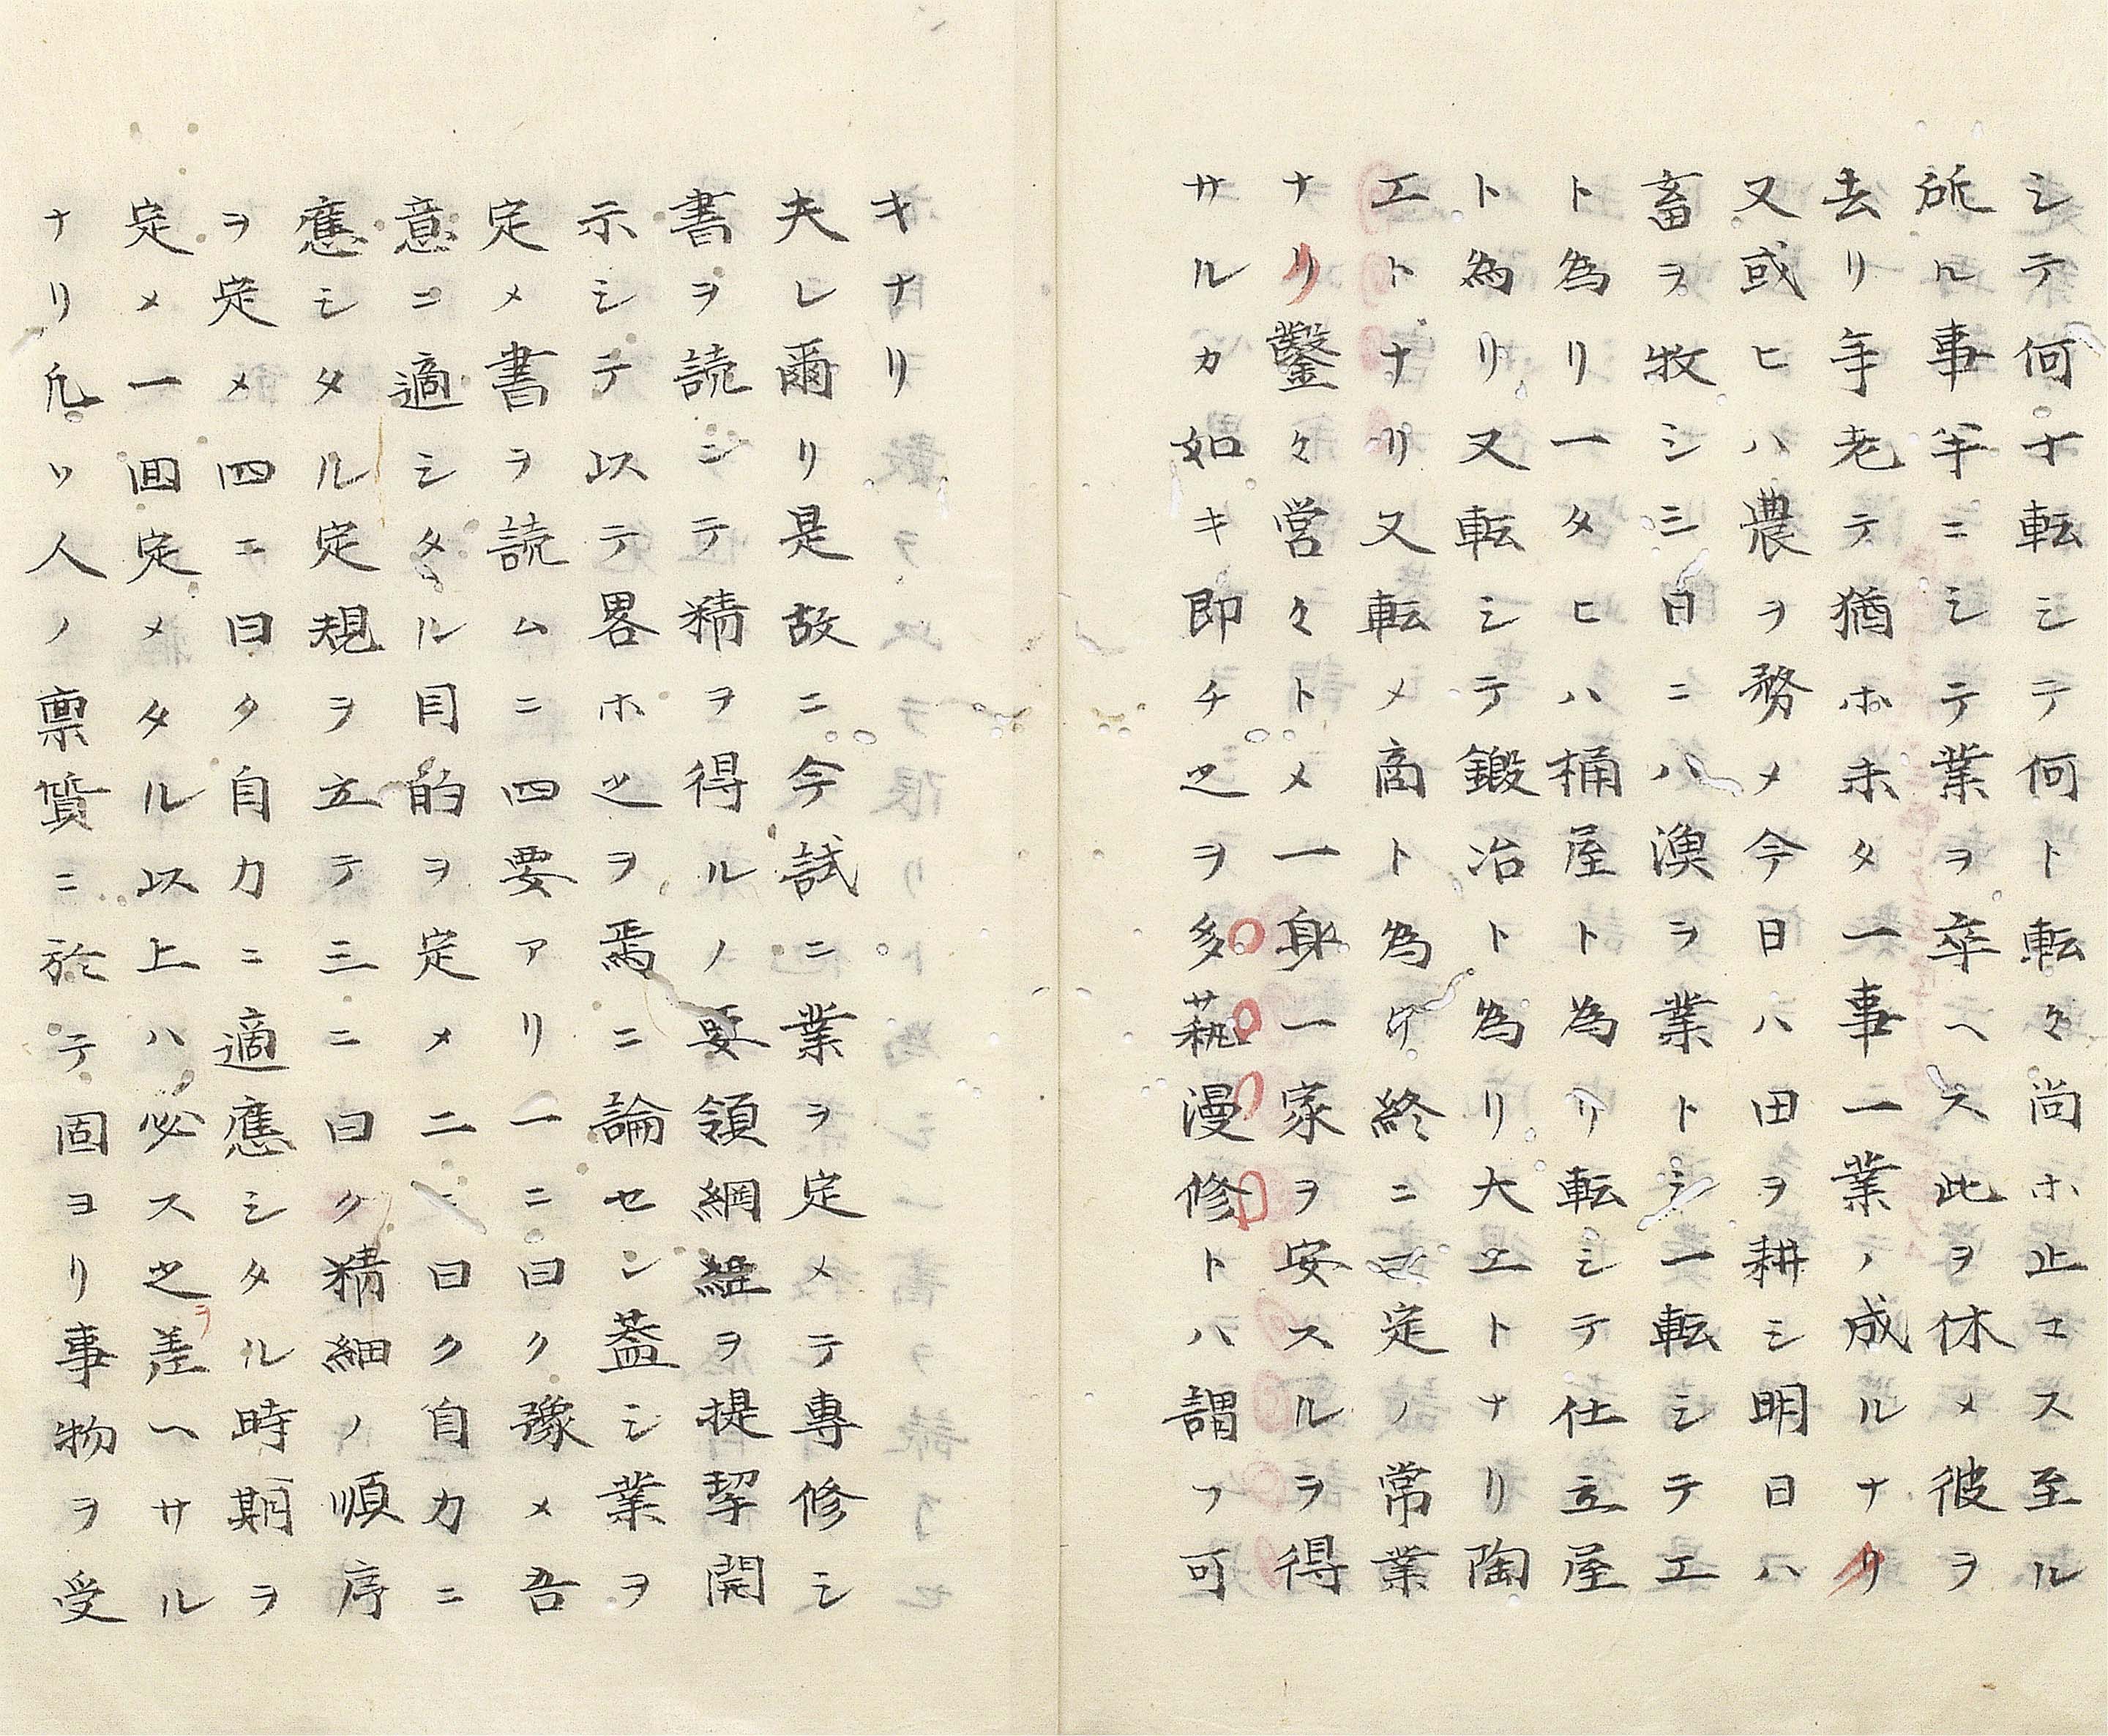 シテ何十転シテ何ト転々尚ホ止マス至ル
所ル事半ニシテ業ヲ卒ヘス此ヲ休メ彼ヲ
去リ年老テ猶ホ未タ一事一業ノ成ルナリ
又或ヒハ農ヲ務メ今日ハ田ヲ耕シ明日ハ
畜ヲ牧シ三日ニハ漁ヲ業トシ一転シテエ
ト為リ一タヒハ桶屋ト為リ転シテ仕立屋
ト為リ又転シテ鍛冶ト為リ大エトナリ陶
エトナリ又転メ商ト為リ終ニ一定ノ常業
ナリ鑿々営々トメ一身一家ヲ安スルヲ得
サルカ如キ即チ之ヲ多蓺漫修トハ謂フ可
キナリ
夫レ爾リ是故ニ今試ニ業ヲ定メテ專修シ
書ヲ読シテ精ヲ得ルノ要領綱紐ヲ提挈開
示シテ以テ畧ホ之ヲ焉ニ論セン蓋シ業ヲ
定メ書ヲ読ムニ四要アリ一ニ曰ク豫メ吾
意ニ適シタル目的ヲ定メ二ニ曰ク自カニ
應シタル定規ヲ立テ三ニ曰ク精細ノ順序
ヲ定メ四ニ曰ク自カニ適應シタル時期ヲ
定メ一囬定メタル以上ハ必ス之ヲ差ヘサル
ナリ凢ソ人ノ禀質ニ於テ固ヨリ事物ヲ受